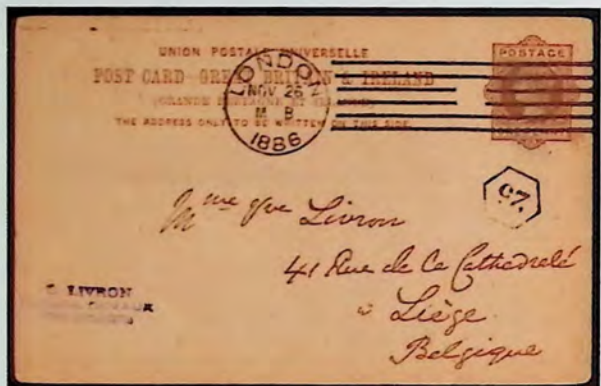 UNION POSTALE UNIVERSELLE
POST CARD GREAT BRITAIN & IRELAND
(GRANDE BRETAGNE ET IRLANDE)
THE ADDRESS ONLY TO BE WRITTEN ON THIS SIDE.
POSTAGE
LONDON
NOV 26
M B
1886
97.
Mme Vve Livron
41 Rue de la Cathedralé
à Liège
Belgique
LIVRON